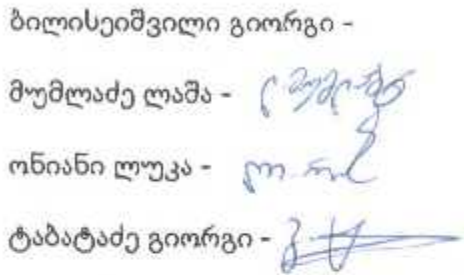 ბილისეიშვილი გიორგი -
მუმლაძე ლაშა -
ონიანი ლუკა -
ტაბატაძე გიორგი -